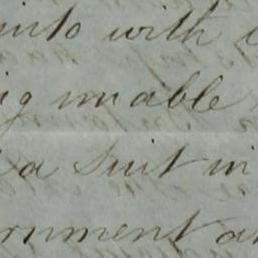 into with
ing unable
a Suit in
ernment a